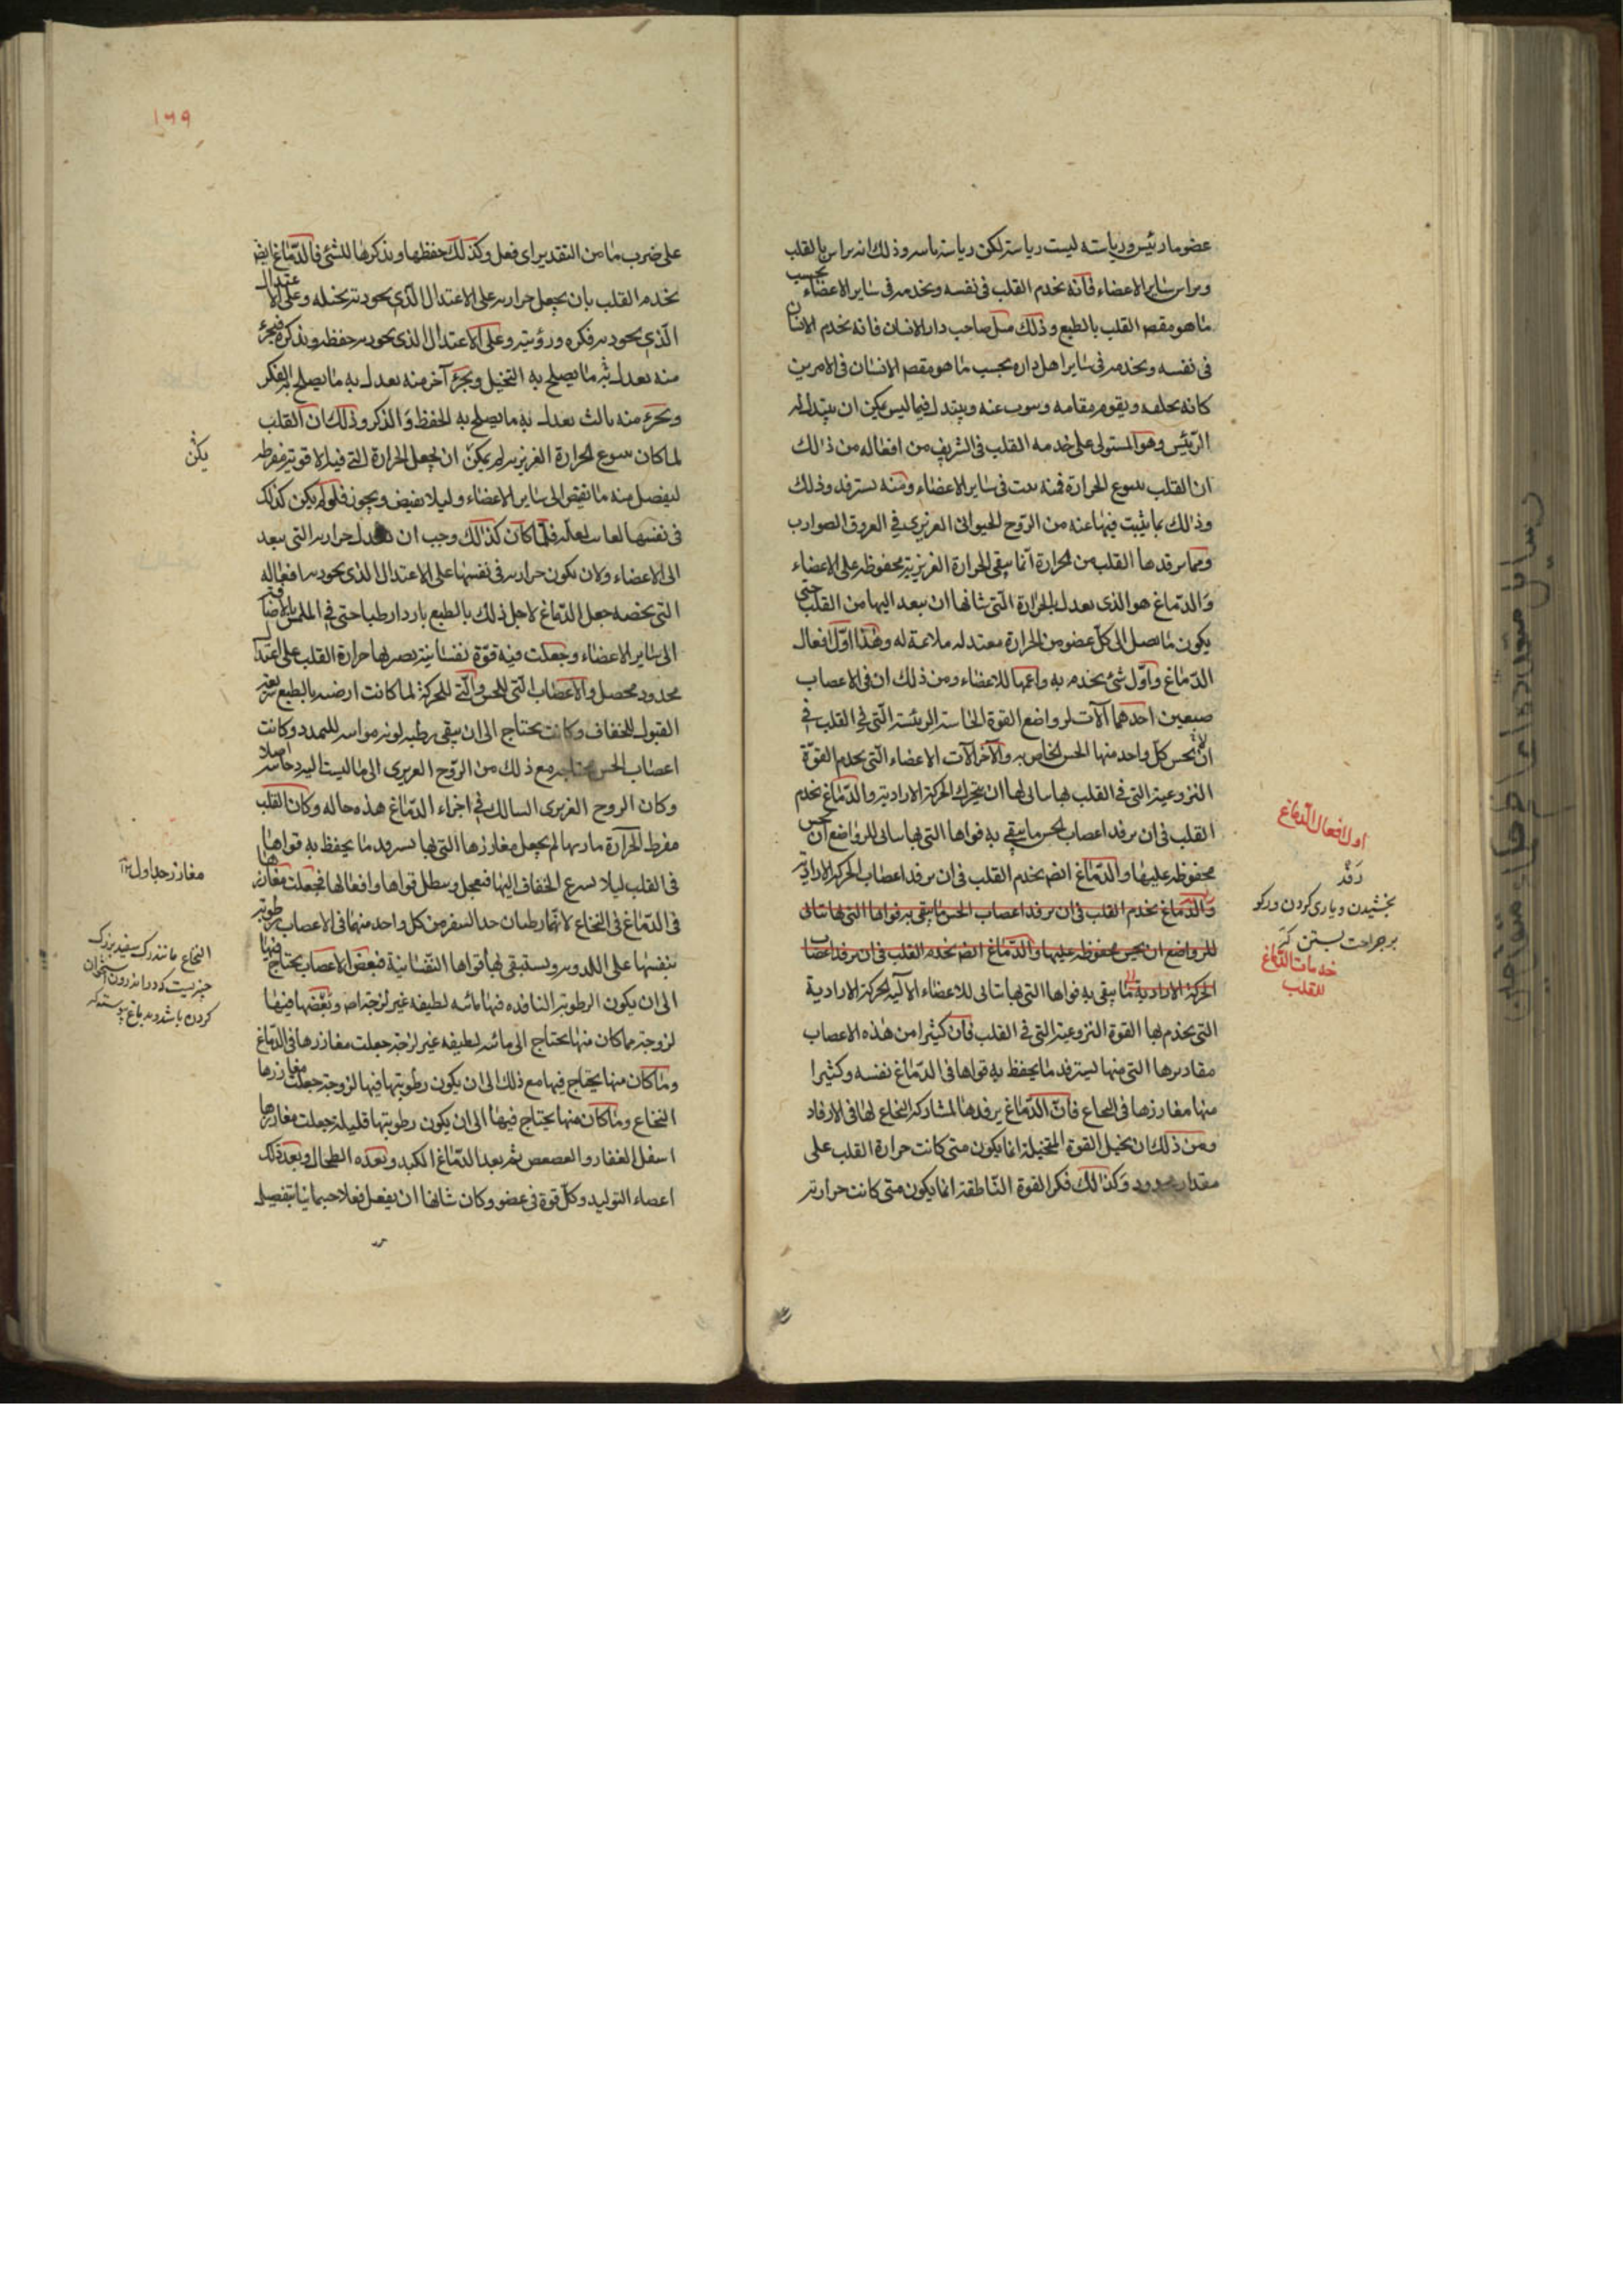 عضو ما رئيس ورياسته ليست رياسة لكن رياسة ما سر وذلك انه يراس بالقلب
ويراس ساير الاعضاء فانه يخدم القلب في نفسه ويخدمه في ساير الاعضاء بحسب
ما هو مقصد القلب بالطبع وذلك مثل صاحب دار الانسان فانه يخدم الانسان
في نفسه ويخدمه في ساير اهل داره بحسب ما هو مقصد الانسان في الامرين
كانه يخلفه ويقوم مقامه وينوب عنه ويتبدل فيما ليس يمكن ان يتبدل له
الرئيس وهو المستولى على خدمة القلب في الشريف من افعاله من ذلك
ان القلب ينبوع الحرارة فمنه تنبث في ساير الاعضاء ومنه تسترفد وذلك
وذلك بما يثبت فيها عنه من الروح الحيوانى الغريزى في العروق الضوارب
ومما يرفدها القلب من الحرارة انما يبقى الحرارة الغريزية محفوظة على الاعضاء
والدماغ هو الذى يعدل الحرارة التى شانها ان ينفذ اليها من القلب حتى
يكون ما يصل الى كل عضو من الحرارة معتدلة ملائمة له وهذا اول افعال
الدماغ واول شئ يخدم به واعمها للاعضاء ومن ذلك ان في الاعصاب
صنفين احدهما آلات لرواضع القوة الحاسة الرئيسة التى في القلب في
ان يحس كل واحد منها الحس الخاص به والآخر آلات الاعضاء التى يخدم القوة
النزوعية التى في القلب بها يتاتى لها ان يتحرك الحركة الارادية والدماغ يخدم
القلب في ان يرفد اعصاب الحس ما يبقى به قواها التى بها يتاتى للرواضع ان يحس
محفوظة عليها والدماغ ايضا يخدم القلب في ان يرفد اعصاب الحركة الارادية
والدماغ يخدم القلب في ان يرفد اعصاب الحس ما يبقى به قواها التى بها يتاتى
للرواضع ان يحس محفوظة عليها والدماغ ايضا يخدم القلب في ان يرفد اعصاب
الحركة الارادية ما يبقى به قواها التى بها يتاتى للاعضاء الآلية الحركة الارادية
التى يخدم بها القوة النزوعية التى في القلب فان كثيرا من هذه الاعصاب
مغارزها التى منها يسترفد ما يحفظ به قواها في الدماغ نفسه وكثيرا
منها مغارزها في النخاع فان الدماغ يرفدها لمشاركة النخاع لها في الارفاد
ومن ذلك ان تخيل القوة المتخيلة انما يكون متى كانت حرارة القلب على
مقدار محدود وكذلك فكر القوة الناطقة انما يكون متى كانت حرارته
اول افعال الدماغ
رفد
بخشيدن ويارى كردن ورگو
بر جراحت بستن كز
خدمات الدماغ
للقلب
١٦٩
على ضرب ما من التقدير اى فعل وكذلك حفظها وتذكرها للشئ فالدماغ ايضا
يخدم القلب بان يجعل حرارته على الاعتدال الذى يجود به تخيله وعلى الاعتدال
الذى يجود به فكره ورؤيته وعلى الاعتدال الذى يجود به حفظه وتذكره فبجزء
منه يعدل به ما يصلح به التخيل وبجزء آخر منه يعدل به ما يصلح به الفكر
وبجزء منه ثالث يعدل به ما يصلح به الحفظ والذكر وذلك ان القلب
لما كان ينبوع الحرارة الغريزية لم يمكن ان يجعل الحرارة التى فيه الا قوية مفرطة
ليفضل منه ما يفيض الى ساير الاعضاء ولئلا يفيض ويجوز فلو لم يكن كذلك
في نفسها فلما كان كذلك وجب ان يعدل حرارته التى ينفذ
الى الاعضاء ولان يكون حرارته في نفسها على الاعتدال الذى يجود به افعاله
التى تخصه جعل الدماغ لاجل ذلك بالطبع باردا رطبا حتى في الملمس بالاضافة
الى ساير الاعضاء وجعلت فيه قوة نفسانية يصير بها حرارة القلب على اعتدال
محدود محصل والاعصاب التى للحس والتى للحركة لما كانت ارضية بالطبع سريعة
القبول للجفاف وكانت يحتاج الى ان يبقى رطبة لدنة مواتية للتمدد وكانت
اعصاب الحس محتاجة مع ذلك من الروح الغريزى الى ما ليست اليه دخانية اصلا
وكان الروح الغريزى السالك في اجزاء الدماغ هذه حاله وكان القلب
مفرط الحرارة ناريتها لم يجعل مغارزها التى بها يسترفد ما يحفظ به قواها
في القلب لئلا يسرع الجفاف اليها فيتحلل ويبطل قواها وافعالها فجعلت مغارزها
في الدماغ في النخاع لانهما رطبان جدا لينفذ من كل واحد منهما في الاعصاب رطوبة
تبقيها على اللدونة ويستبقى بها قواها النفسانية فبعض الاعصاب يحتاج فيها
الى ان يكون الرطوبة النافذة فيها مائية لطيفة غير لزجة اصلا وبعضها فيها
لزوجة مما كان منها يحتاج الى مائية لطيفة غير لزجة جعلت مغارزها في الدماغ
وما كان منها يحتاج فيها مع ذلك الى ان يكون رطوبتها فيها لزوجة جعلت مغارزها
النخاع وما كان منها يحتاج فيها الى ان يكون رطوبتها قليلة جعلت مغارزها
اسفل الفقار والعصعص ثم بعد الدماغ الكبد وبعده الطحال وبعد ذلك
اعضاء التوليد وكل قوة في عضو وكان شانها ان يفعل فعلا جسمانيا ينفصل
يكن
مغارز جداول
النخاع مانند رگ سفيد بزرگ
چيزيست كه در اندرون استخوان
گردن باشد و بدماغ پيوسته
رسايل